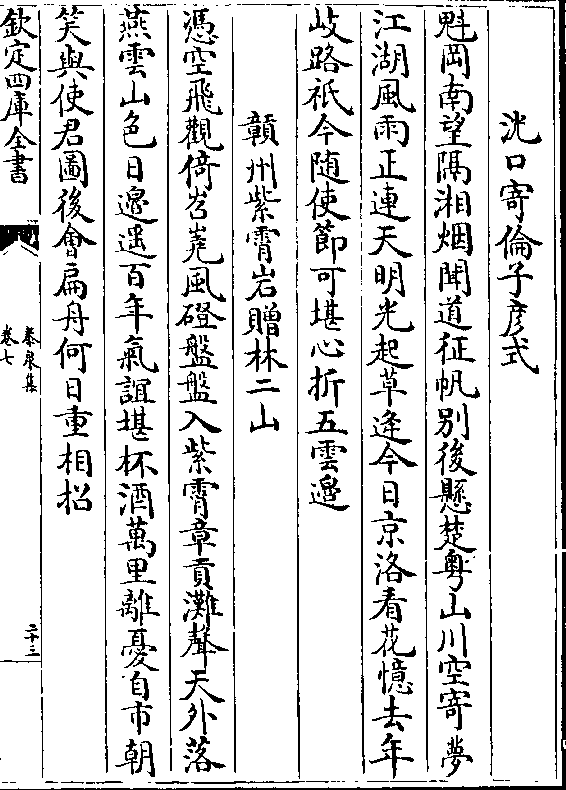 沇口寄倫子彥式
魁岡南望隔湘烟聞道征帆別後懸楚粵山川空寄夢
江湖風雨正連天明光起草逢今日京洛看花憶去年
岐路祇今随使節可堪心折五雲邉
贛州紫霄岩贈林二山
憑空飛觀倚岧嶤風磴盤盤入紫霄章貢灘聲天外落
燕雲山色日邊遥百年氣誼堪杯酒萬里離憂自市朝
笑與使君圖後會扁舟何日重相招
欽定四庫全書
泰泉集
卷七
二十三